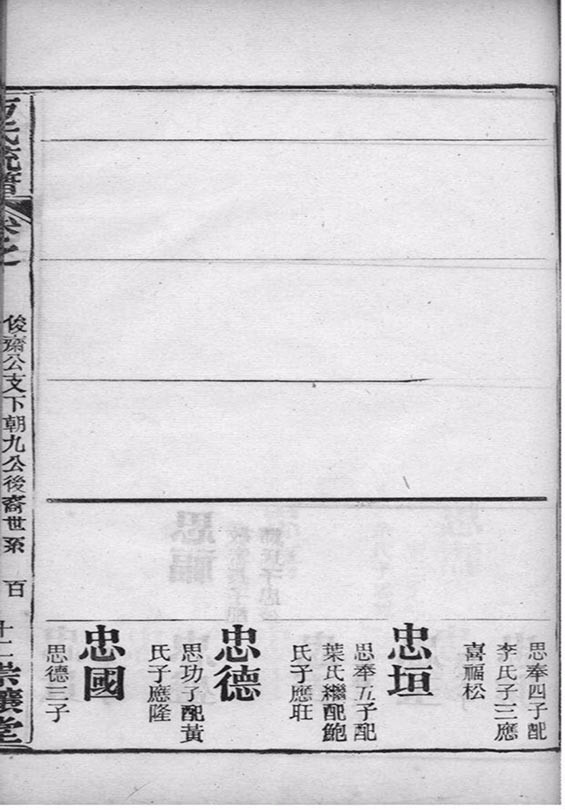 思奉四子配
李氏子三應
喜福松
忠垣
思奉五子配
葉氏繼配鮑
氏子應旺
忠德
思功子配黃
氏子應隆
忠國
思德三子
氏流譜
卷之
俊齋公支下朝九公後裔世系
百
十二
堂